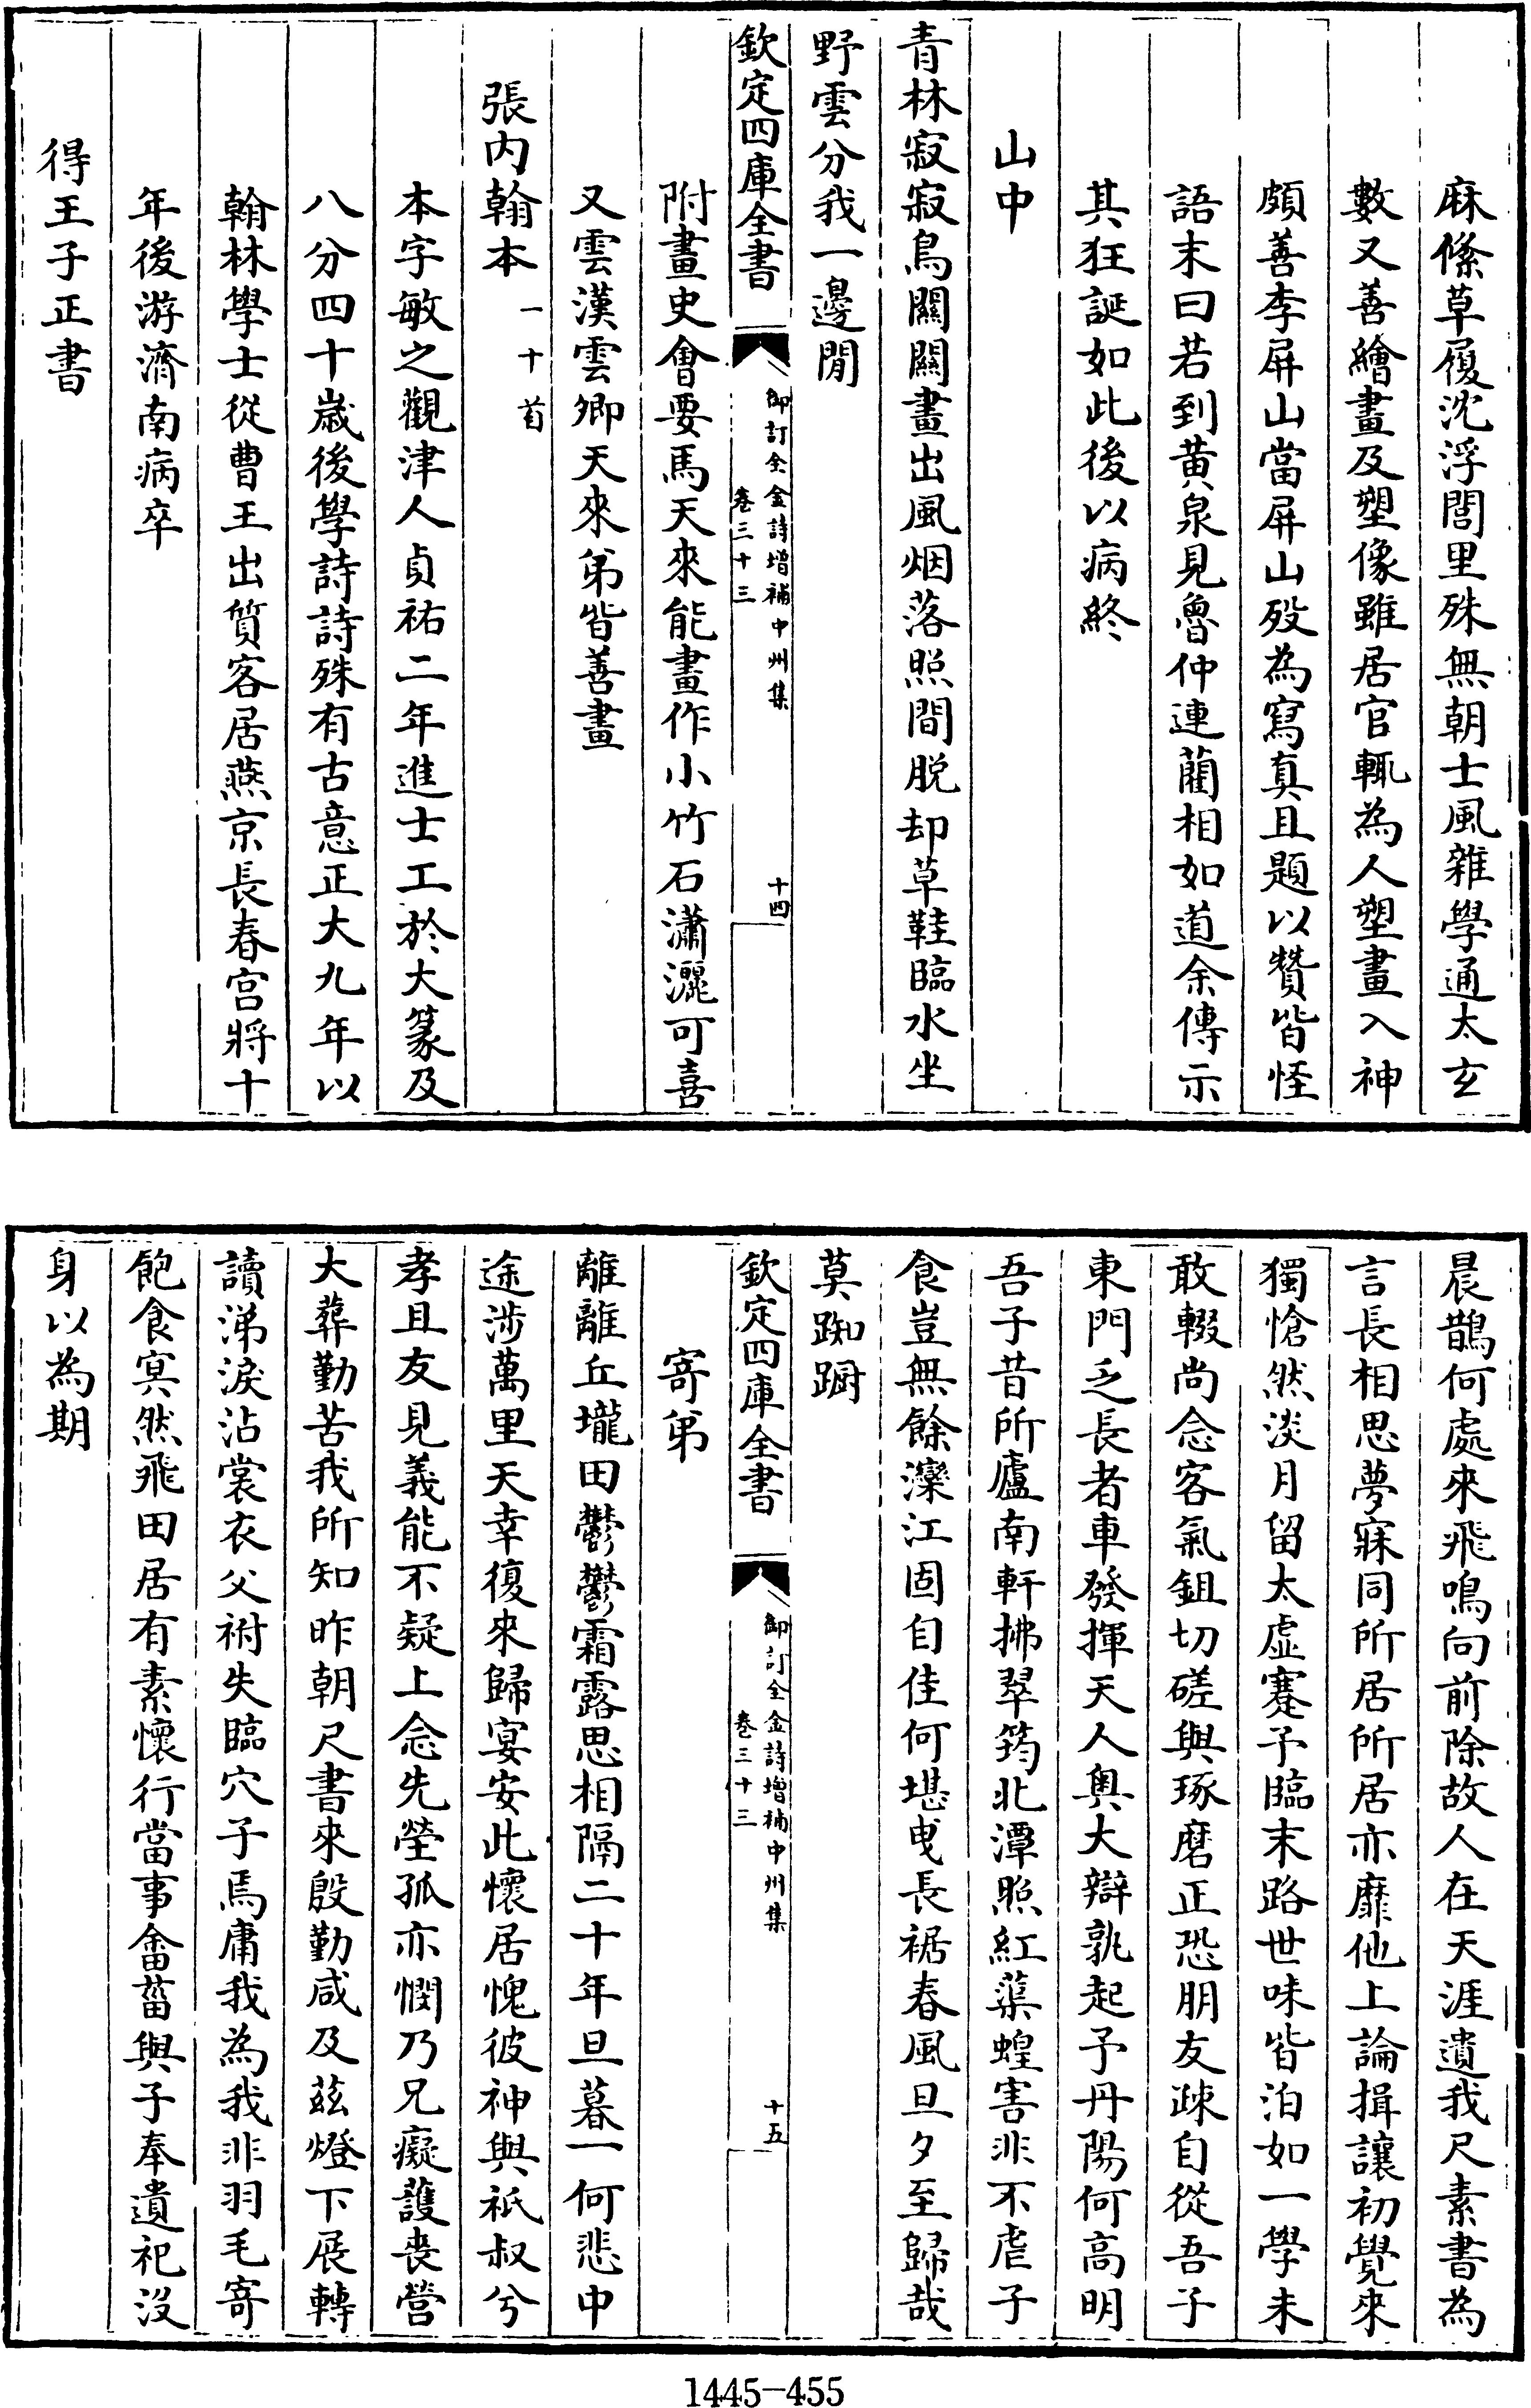 麻絛草履沈浮閭里殊無朝士風雜學通太玄
數又善繪畫及塑像雖居官輒為人塑畫入神
頗善李屏山當屏山歿為寫真且題以贊皆怪
語末曰若到黃泉見魯仲連藺相如道余傳示
其狂誕如此後以病終
山中
青林寂寂鳥關關畫出風烟落照間脫却草鞋臨水坐
野雲分我一邊閒
欽定四庫全書
御訂全金詩增補中州集
卷三十三
十四
附畫史會要馬天來能畫作小竹石瀟灑可喜
又雲漢雲卿天來弟皆善畫
張內翰本一十首
本字敏之觀津人貞祐二年進士工於大篆及
八分四十歲後學詩詩殊有古意正大九年以
翰林學士從曹王出質客居燕京長春宮將十
年後游濟南病卒
得王子正書
晨鵲何處來飛鳴向前除故人在天涯遺我尺素書為
言長相思夢寐同所居所居亦靡他上論揖讓初覺來
獨愴然淡月留太虛蹇予臨末路世味皆泊如一學未
敢輟尚念客氣鉏切磋與琢磨正恐朋友疎自從吾子
東門乏長者車發揮天人奧大辯孰起予丹陽何高明
吾子昔所廬南軒拂翠筠北潭照紅蕖蝗害非不虐子
食豈無餘灤江固自佳何堪曵長裾春風旦夕至歸哉
莫踟躕
欽定四庫全書
御訂全金詩增補中州集
卷三十三
十五
寄弟
離離丘壠田鬱鬱霜露思相隔二十年旦暮一何悲中
途涉萬里天幸復來歸宴安此懷居愧彼神與祇叔兮
孝且友見義能不疑上念先塋孤亦憫乃兄癡護喪營
大葬勤苦我所知昨朝尺書來殷勤咸及茲燈下展轉
讀涕淚沾裳衣父祔失臨穴子焉庸我為我非羽毛寄
飽食冥然飛田居有素懷行當事畬菑與子奉遺祀沒
身以為期
1445-455